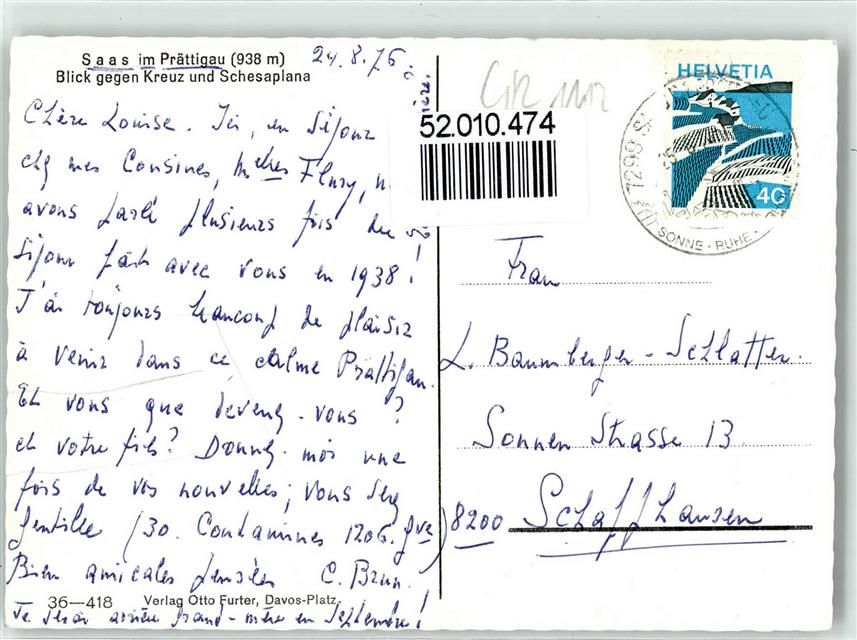 Saas im Prättigau (938 m)
Blick gegen Kreuz und Schesaplana
24.8.76
Chère Louise. Ici, en séjour
chez mes Cousines, Melles Flury, n
avons parlé plusieurs fois du
séjour fait avec vous en 1938!
J'ai toujours beaucoup de plaisir
à venir dans ce calme Prättigau.
Et vous que devenez-vous ?
et votre fils? Donnez-moi une
fois de vos nouvelles; vous serez
gentille (30. Contamines 1206. Gve)
Bien amicales pensées C. Brun.
36—418 Verlag Otto Furter, Davos-Platz
Je serai arrière grand-mère en Septembre!
GR 1112
52.010.474
HELVETIA
40
7299 SAAS
SONNE · RUHE ·
Frau
L. Baumberger-Schlatter.
Sonnen Strasse 13
8200 Schaffhausen